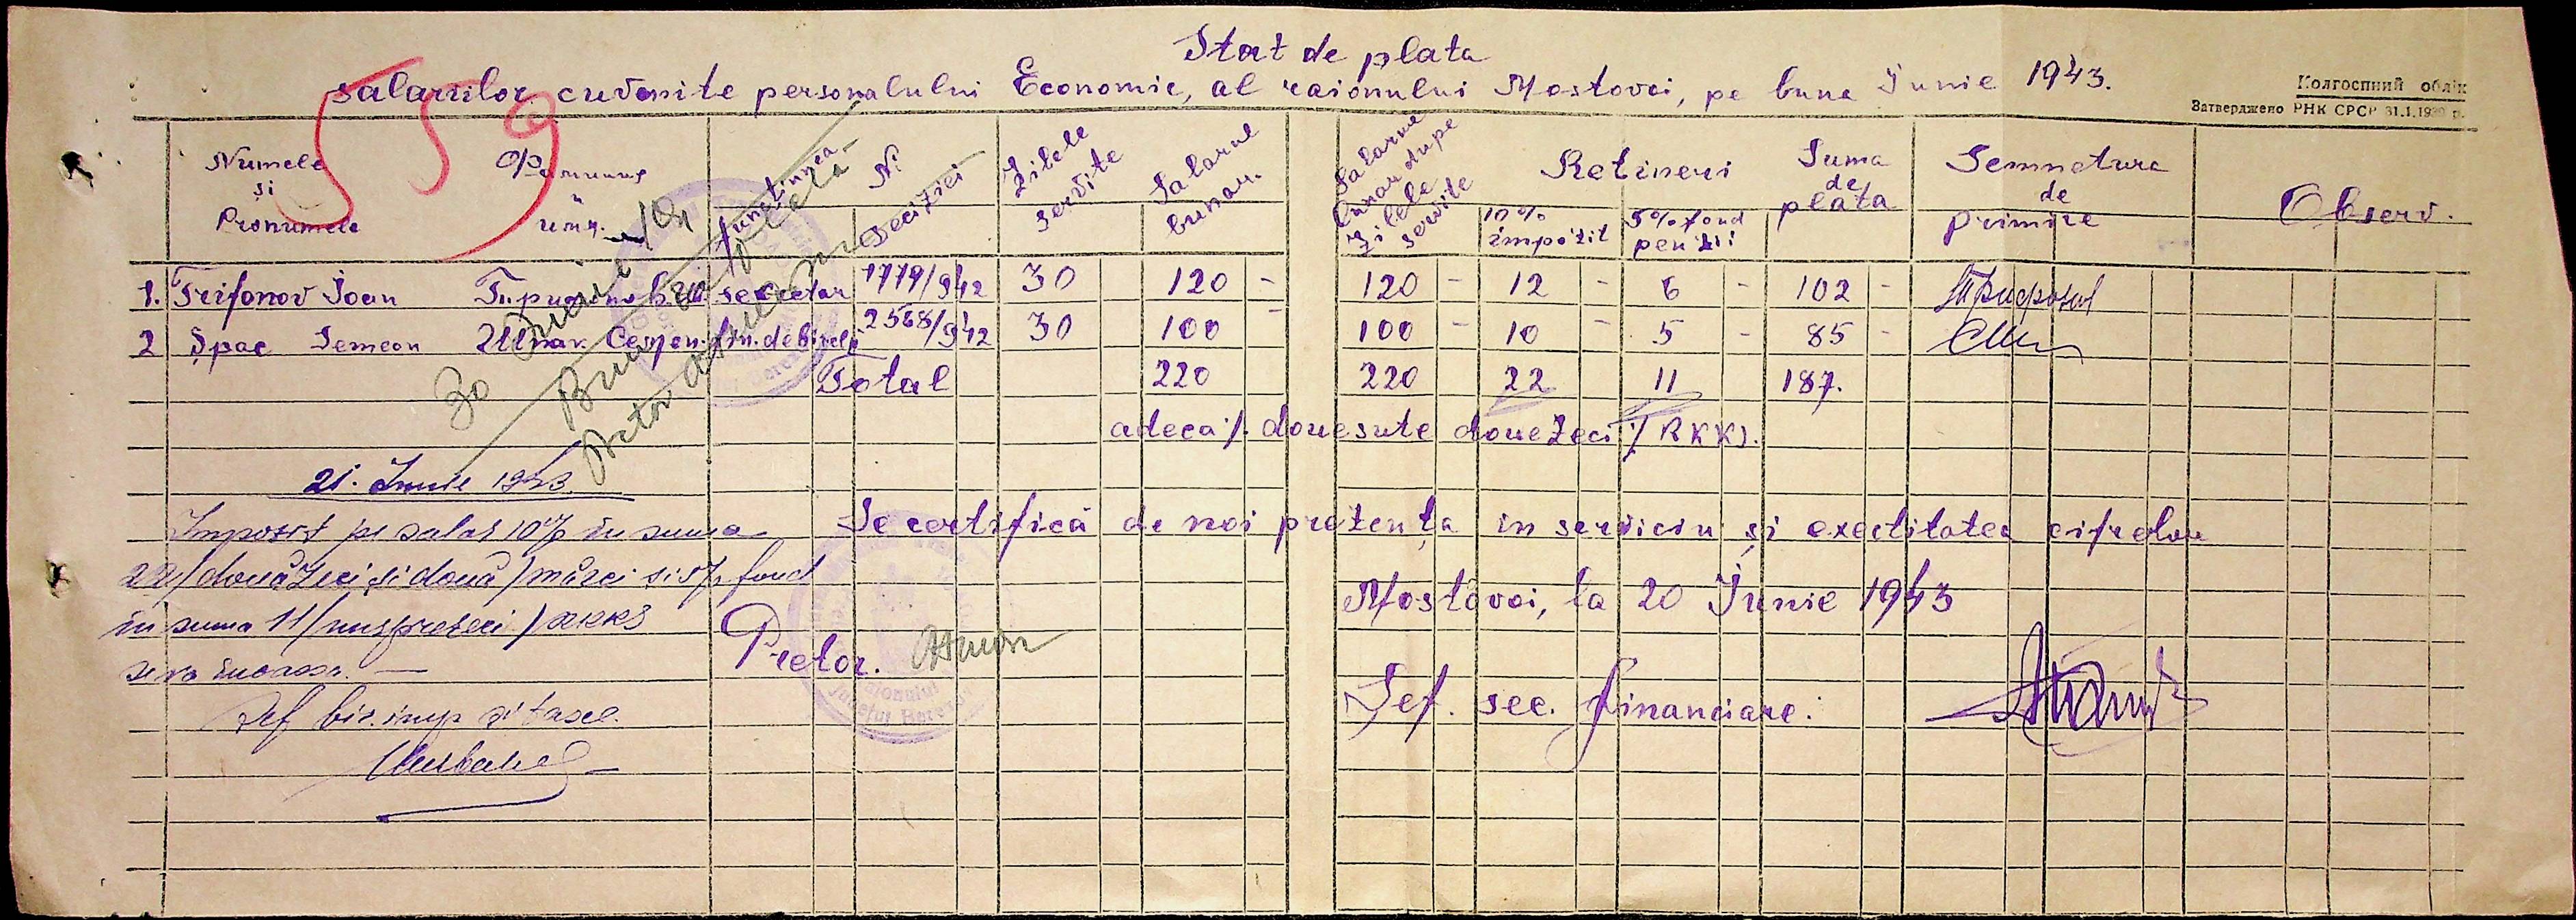 Stat de plata
salariilor cuvenite personalului Economic, al raionului Mostovoi, pe luna Junie 1943.
Колгоспний облік
Затверджено РНК СРСР 31.1.1939 р.
559
Numele și Pronumele
Фамилия и имя
functiunea
Nr deciziei
Zilele servite
Salarul lunar.
Salarul lunar dupe zilele servite
Retineri
10% impozit
5% fond pensii
Suma de plata
Semnetura de primire
Observ.
1. Trifonov Joan secretar 1779/942 30 120 - 120 - 12 - 6 - 102 - Трифонов
2 Șpac Semeon Шпак Семен 2568/942 30 100 - 100 - 10 - 5 - 85 -
Total 220 220 22 11 187.
adeca /. douesute doue zeci ./ RKKS.
21. Junie 1943
Impozit pe salar 10% în suma
22/ douăzeci și două) mărci si 5% fond
in suma 11/ unsprezeci ) RKKS
se va încasa. —
Șef bir. imp și taxe.
Se certifică de noi prezența in serviciu și exectitatea cifrelor
Mostovoi, la 20 Junie 1943
Pretor.
Șef. sec. financiare.
raionului
Județul Berezovca